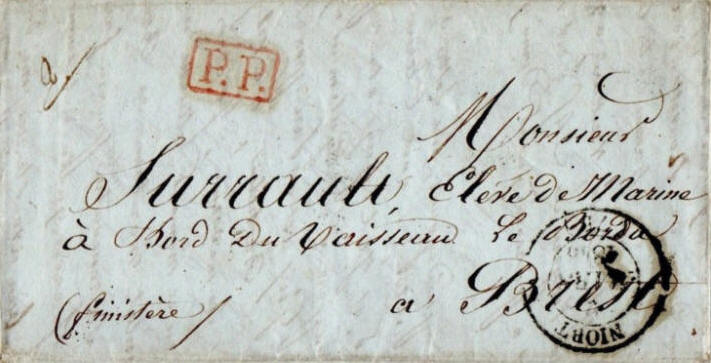 P.P.
Monsieur
Surrault, Elève de Marine
à Bord Du Vaisseau Le Borda
a Brest
(finistère)
NIORT